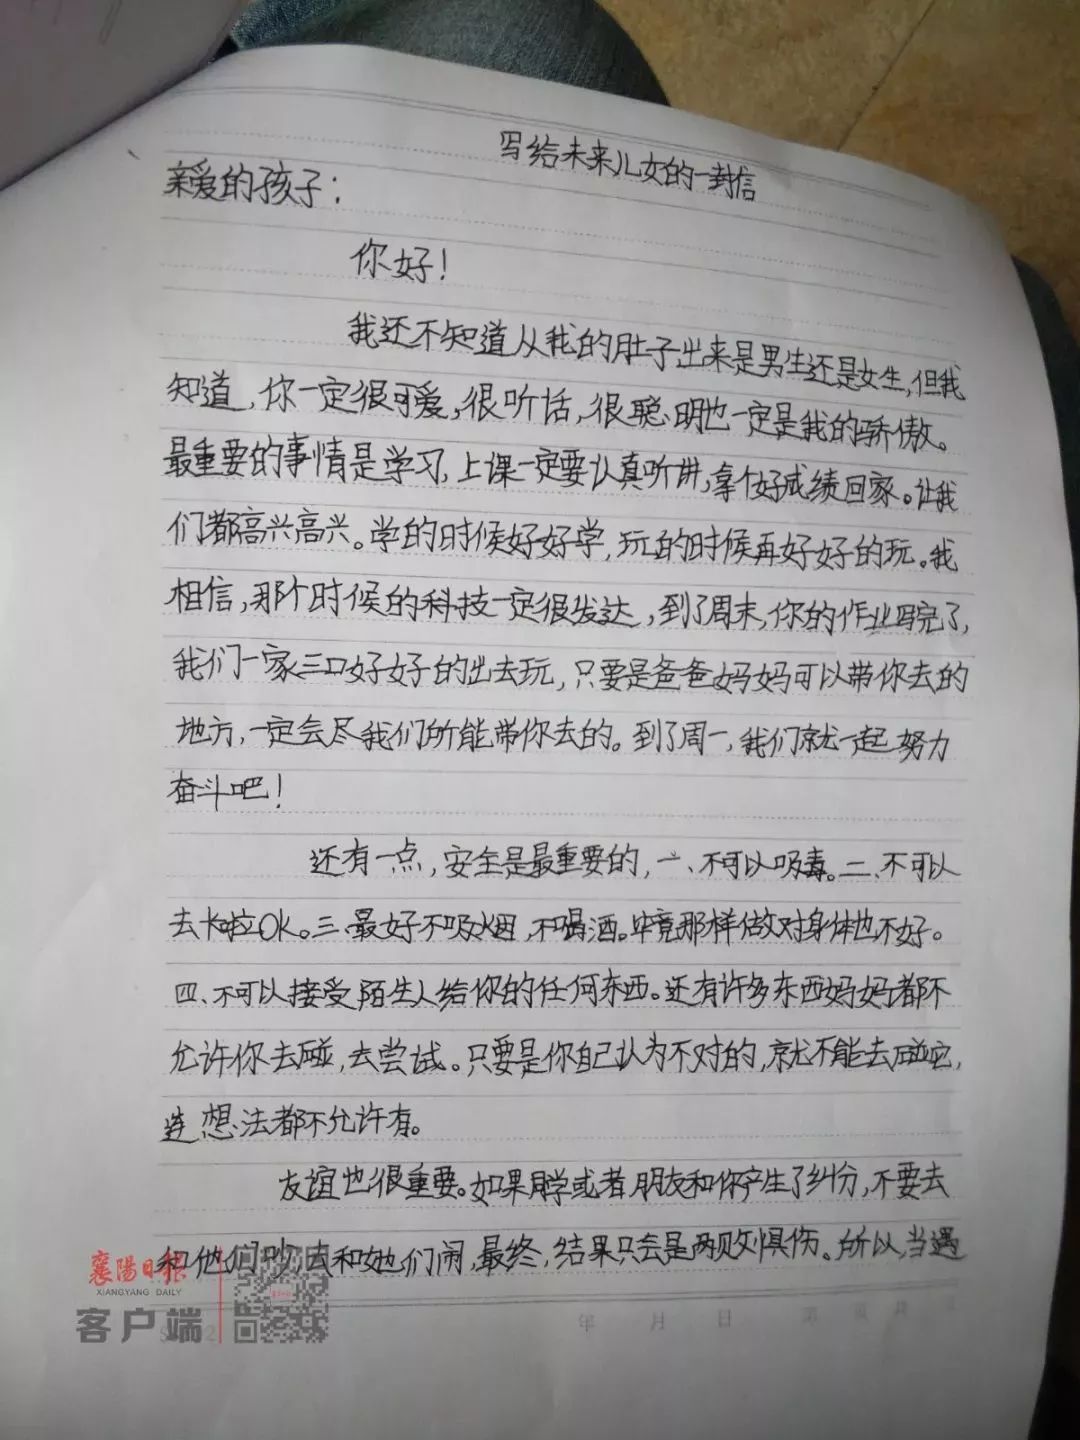 写给未来儿女的一封信
亲爱的孩子：
你好！
我还不知道从我的肚子出来是男生还是女生，但我
知道，你一定很可爱，很听话，很聪明也一定是我的骄傲。
最重要的事情是学习，上课一定要认真听讲，拿个好成绩回家。让我
们都高兴高兴。学的时候好好学，玩的时候再好好的玩。我
相信，那个时候的科技一定很发达，到了周末，你的作业写完了，
我们一家三口好好的出去玩，只要是爸爸妈妈可以带你去的
地方，一定会尽我们所能带你去的。到了周一，我们就一起努力
奋斗吧！
还有一点，安全是最重要的，一、不可以吸毒。二、不可以
去卡啦OK。三、最好不吸烟，不喝酒。毕竟那样做对身体也不好。
四、不可以接受陌生人给你的任何东西。还有许多东西妈妈都不
允许你去碰，去尝试。只要是你自己认为不对的，就不能去碰它，
连想法都不允许有。
友谊也很重要。如果同学或者朋友和你产生了纠纷，不要去
和他们吵，去和她们闹，最终，结果只会是两败俱伤。所以，当遇
襄陽日报
XIANGYANG DAILY
客户端
年 月 日 第 页 共 页